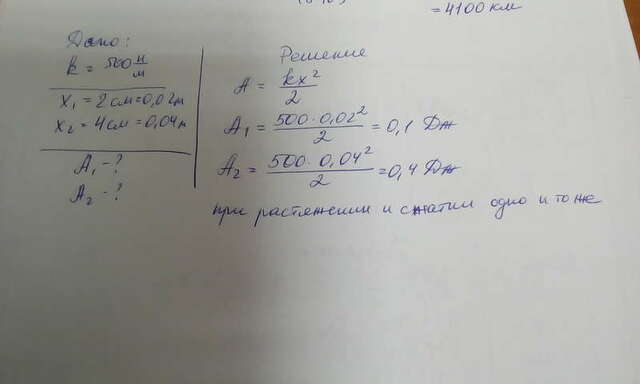 = 4100 км
Дано:
k = 500 н/м
x₁ = 2 см = 0,02 м
x₂ = 4 см = 0,04 м
A₁ - ?
A₂ - ?
Решение
A = kx²/2
A₁ = 500 · 0,02²/2 = 0,1 Дж
A₂ = 500 · 0,04²/2 = 0,4 Дж
при растяжении и сжатии одно и тоже